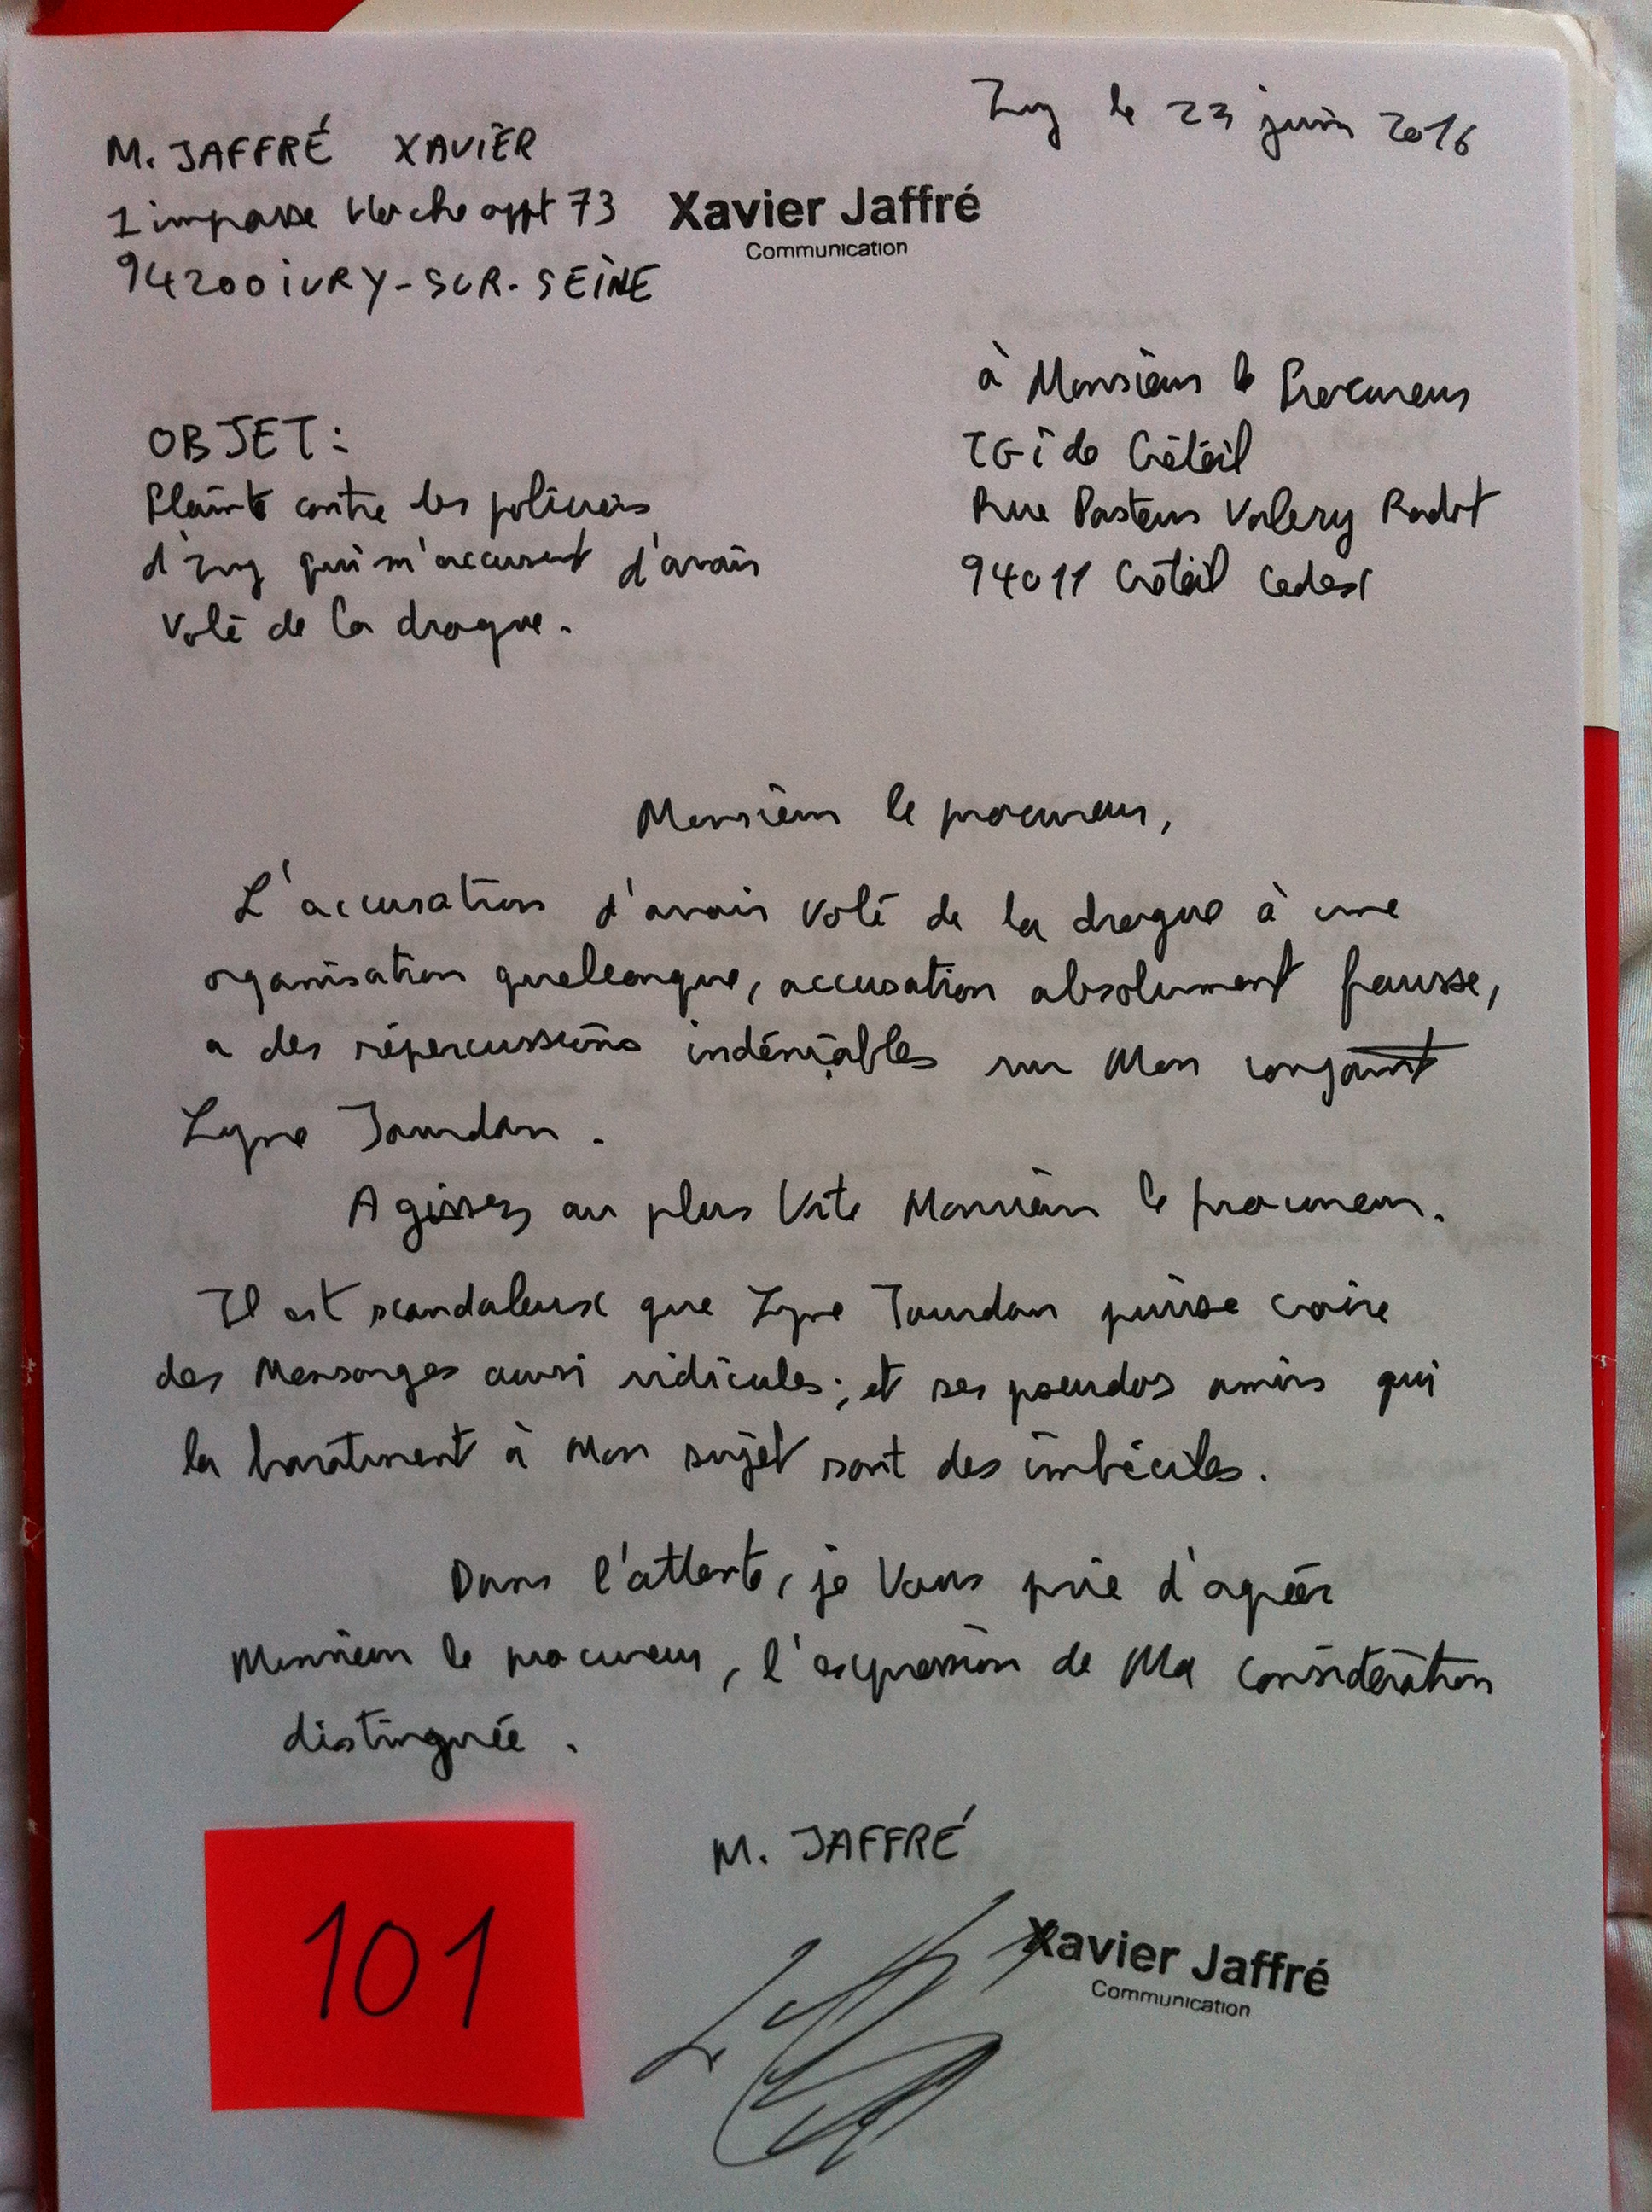 Ivry le 23 juin 2016
M. JAFFRÉ XAVIER
1 impasse appt 73
94200 IVRY-SUR-SEINE
Xavier Jaffré
Communication
à Monsieur le Procureur
TGI de Créteil
Rue Pasteur Valery Radot
94011 Créteil Cedex
OBJET:
Plainte contre les policiers
d'Ivry qui m'accusent d'avoir
volé de la drogue.
Monsieur le procureur,
L'accusation d'avoir volé de la drogue à une
organisation quelconque, accusation absolument fausse,
a des répercussions indéniables sur Mon conjoint
Lyne Jourdan.
Agissez au plus Vite Monsieur le procureur.
Il est scandaleux que Lyne Jourdan puisse croire
des Mensonges aussi ridicules; et ses pseudos amis qui
la baratinent à Mon sujet sont des imbéciles.
Dans l'attente, je Vous prie d'agréer
Monsieur le procureur, l'expression de Ma considération
distinguée.
M. JAFFRÉ
Xavier Jaffré
Communication
101